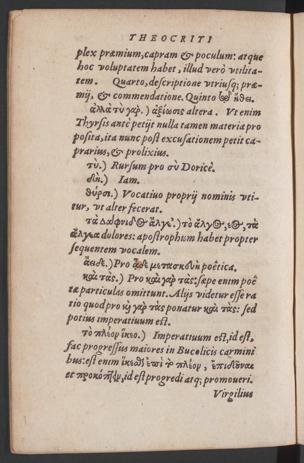 THEOCRITI
plex præmium, capram & poculum: atque
hoc voluptatem habet, illud verò vtilita-
tem. Quarto, descriptione vtriusq; præ-
mij, & commendatione. Quinto ἤθει.
ἀλλὰ τὺ γὰρ.) ἀξίωσις altera. Vt enim
Thyrsis antè petijt nulla tamen materia pro
posita, ita nunc post excusationem petit ca-
prarius, & prolixius.
τὺ.) Rursum pro σὺ Doricè.
δὴ.) Iam.
θύρσι.) Vocatiuo proprij nominis vti-
tur, vt alter fecerat.
τὰ Δάφνιδος ἄλγε'.) τὸ ἄλγος, εος, τὰ
ἄλγεα dolores: apostrophum habet propter
sequentem vocalem.
ἄειδε.) Pro μετασκευὴ poëtica.
καὶ τᾶς.) Pro καὶ γὰρ τᾶς: sæpe enim poë
tæ particulas omittunt. Alijs videtur esse ra
tio quod pro ἢ γὰρ τᾶς ponatur καὶ τᾶς: sed
potius imperatiuum est.
τὸ πλέον ἵκεο.) Imperatiuum est, id est,
fac progressus maiores in Bucolicis carmini
bus: est enim ἱκέσθαι ἐπὶ τὸ πλέον, ἐπιδοῦναι
et προκόπτειν, id est progredi atq; promoueri.
Virgilius